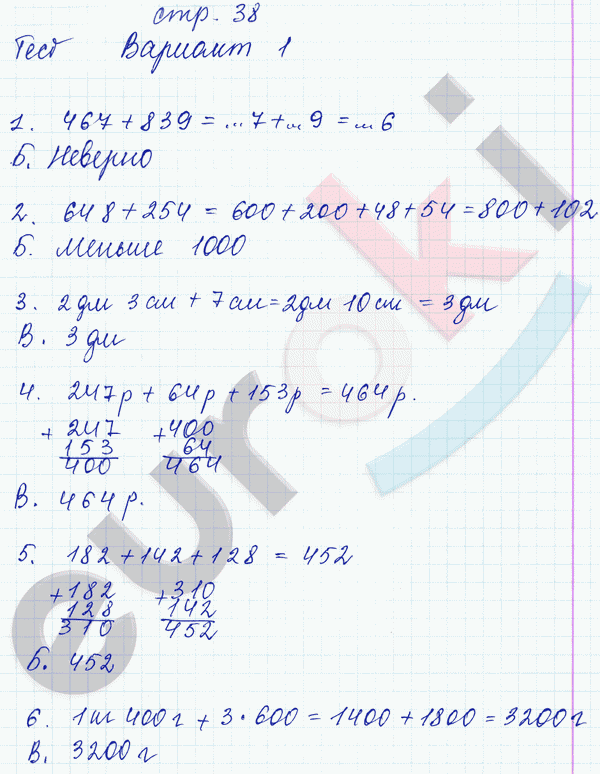 стр. 38
Тест Вариант 1
1. 467 + 839 = ...7 + ...9 = ...6
Б. Неверно
2. 648 + 254 = 600 + 200 + 48 + 54 = 800 + 102
Б. Меньше 1000
3. 2 дм 3 см + 7 см = 2 дм 10 см = 3 дм
В. 3 дм
4. 247 р + 64 р + 153 р = 464 р.
+ 247 + 400
153 64
400 464
В. 464 р.
5. 182 + 142 + 128 = 452
+ 182 + 310
128 142
310 452
Б. 452
6. 1 кг 400 г + 3 · 600 = 1400 + 1800 = 3200 г
В. 3200 г
euroki